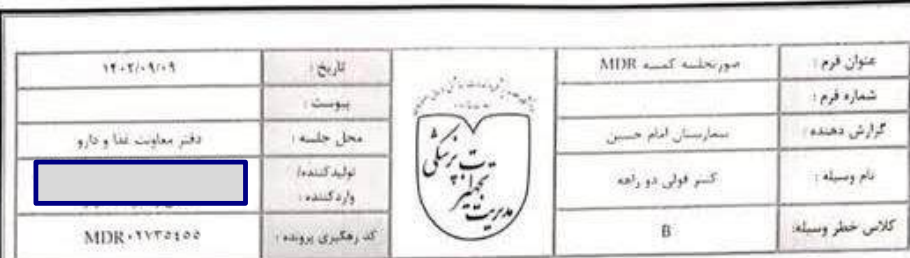 عنوان فرم : صورتجلسه کمیته MDR تاریخ : ۱۴۰۲/۰۹/۰۹
شماره فرم : پیوست :
گزارش دهنده : بیمارستان امام حسین محل جلسه : دفتر معاونت غذا و دارو
نام وسیله : کتتر فولی دو راهه تولید کننده/
وارد کننده :
کلاس خطر وسیله: B کد رهگیری پرونده : MDR۰۲۷۳۵۴۵۵
مدیریت تجهیزات پزشکی